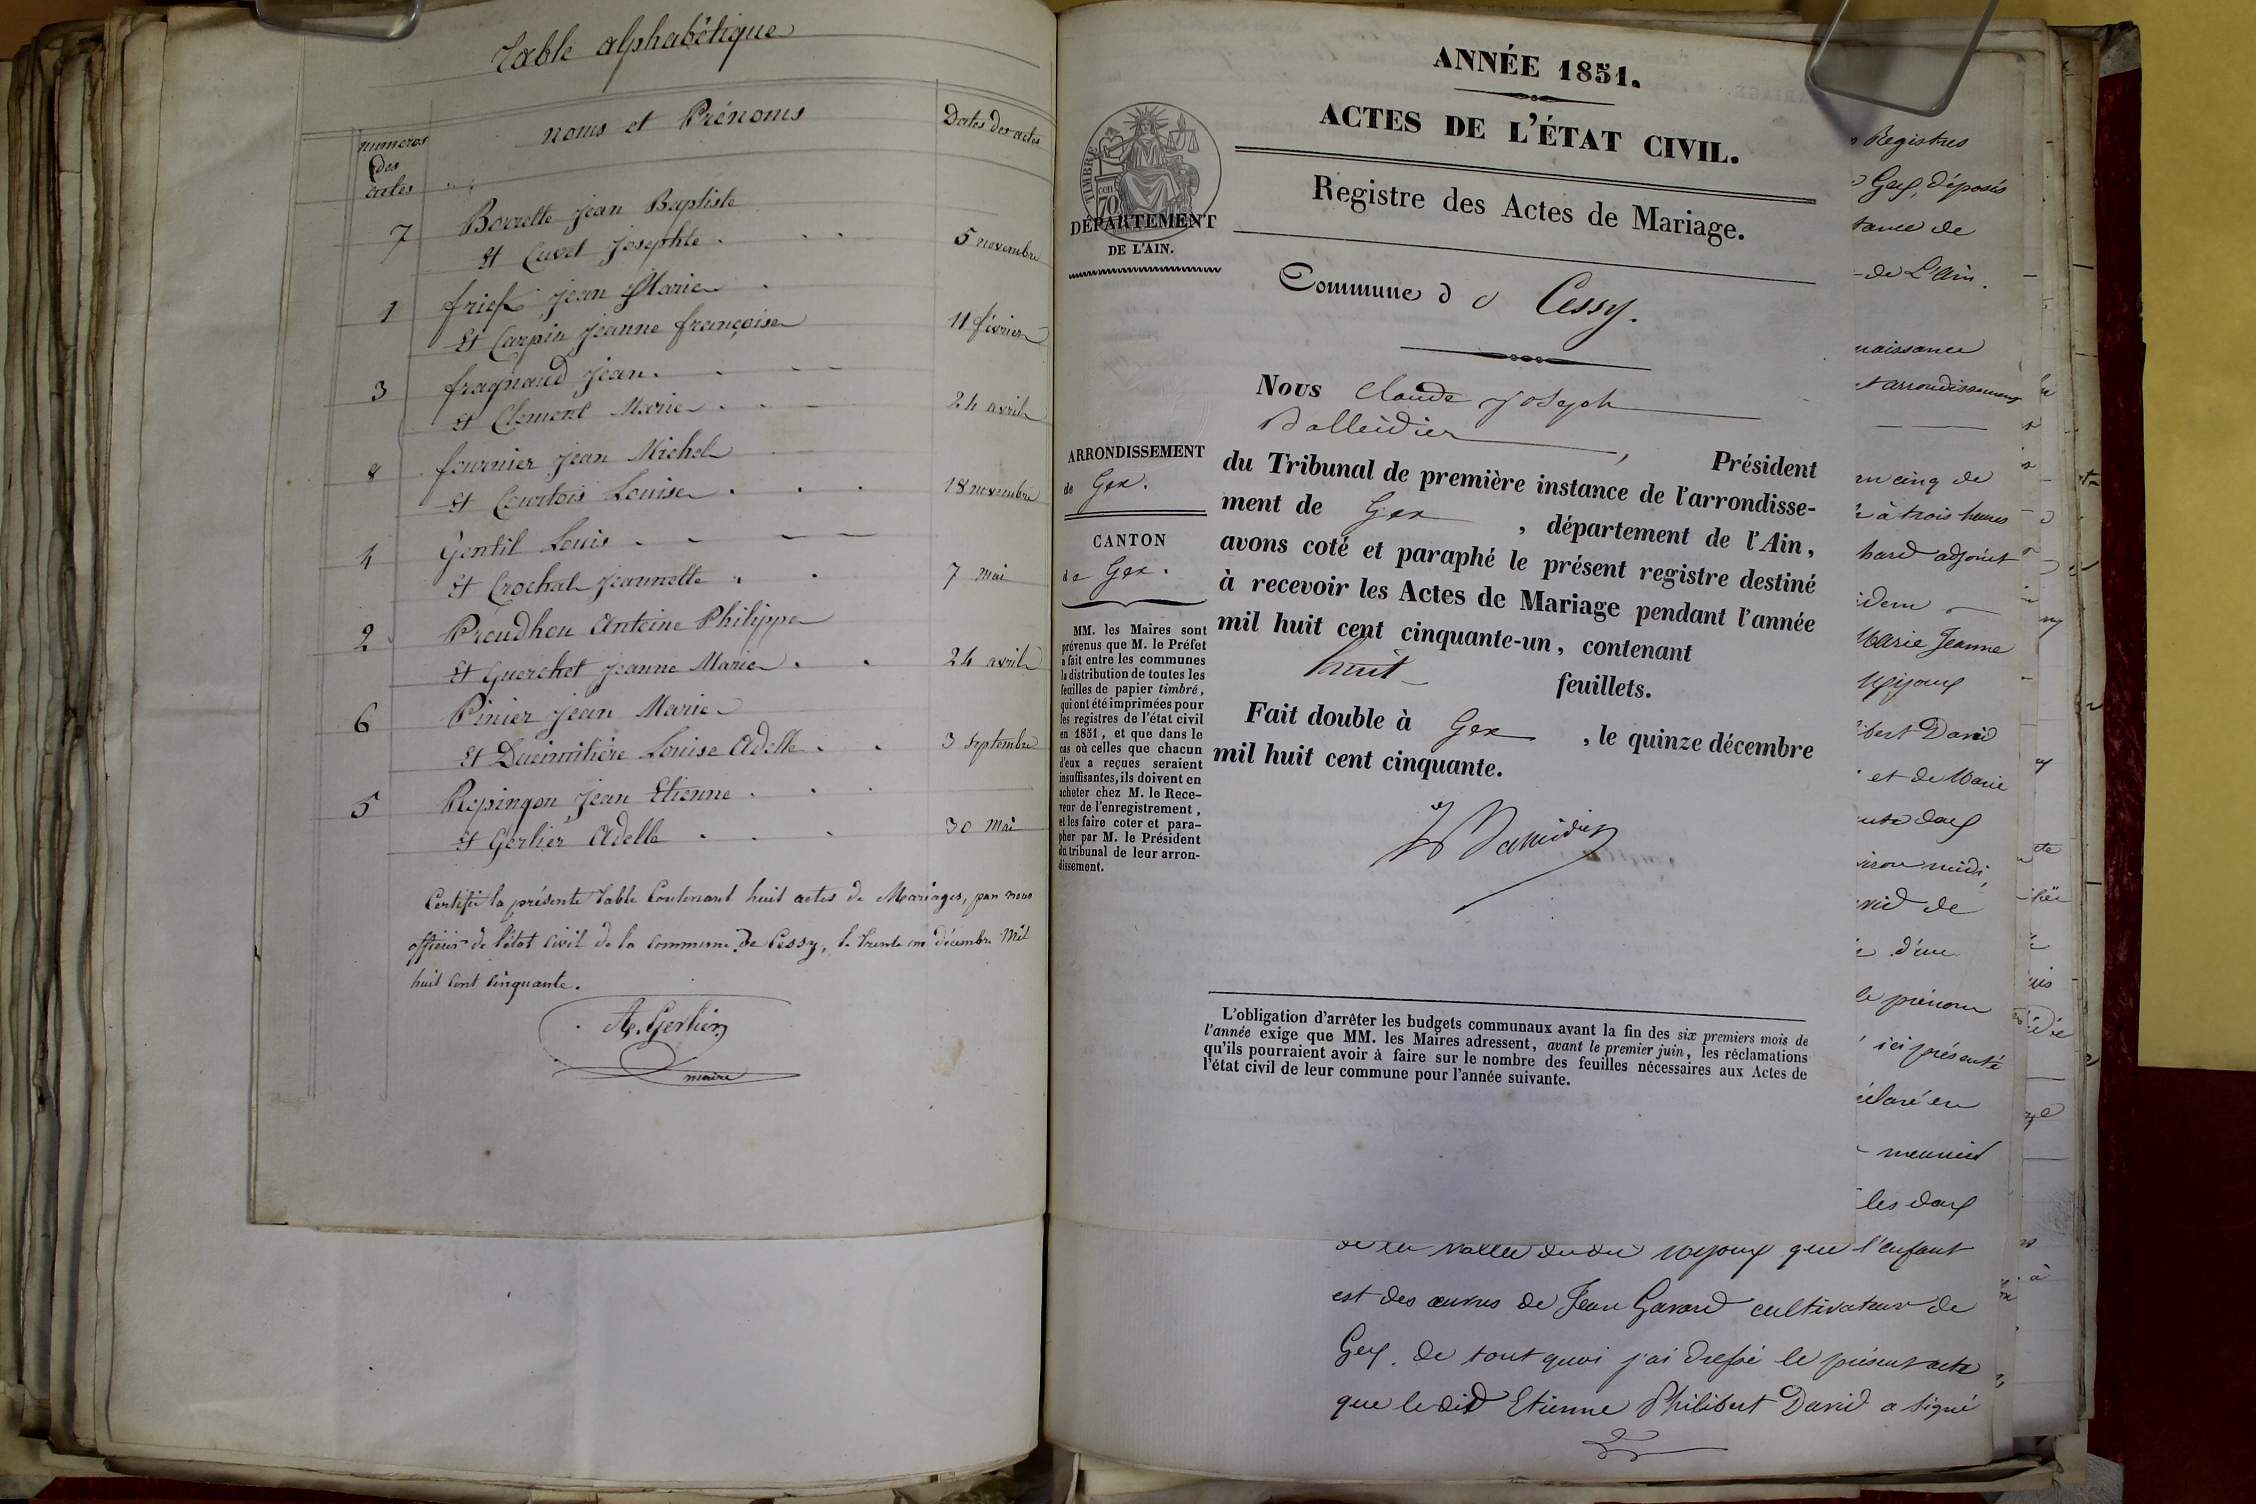 Table alphabétique
numeros des actes
noms et Prénoms
Dates des actes
7 Borrette Jean Baptiste
et Cuvet Josephte 5 novembre
1 frief Jean Marie
et Carpin Jeanne françoise 11 février
3 fragnaud Jean
et Clement Marie 24 avril
8 fournier Jean Michel
et Courtois Louise 18 novembre
4 Gentil Louis
et Crochat Jeannette 7 mai
2 Proudhon Antoine Philippe
et Guerchet Jeanne Marie 24 avril
6 Pinier Jean Marie
et Louise Adelle 3 septembre
5 Repingon Jean Etienne
et Gerlier Adelle 30 mai
Certifié la présente table Contenant huit actes de Mariages, par nous
officier de l'état Civil de la Commune de Cessy, le trente un décembre Mil
huit Cent Cinquante.
Gerlier
maire
ANNÉE 1851.
ACTES DE L'ÉTAT CIVIL.
Registre des Actes de Mariage.
TIMBRE
70
DÉPARTEMENT
DE L'AIN.
Commune d e Cessy.
Nous Claude Joseph
Balleidier, Président
du Tribunal de première instance de l'arrondisse-
ment de Gex, département de l'Ain,
avons coté et paraphé le présent registre destiné
à recevoir les Actes de Mariage pendant l'année
mil huit cent cinquante-un, contenant
huit feuillets.
Fait double à Gex, le quinze décembre
mil huit cent cinquante.
ARRONDISSEMENT
de Gex.
CANTON
de Gex.
MM. les Maires sont
prévenus que M. le Préfet
a fait entre les communes
la distribution de toutes les
feuilles de papier timbré,
qui ont été imprimées pour
les registres de l'état civil
en 1851, et que dans le
cas où celles que chacun
d'eux a reçues seraient
insuffisantes, ils doivent en
acheter chez M. le Rece-
veur de l'enregistrement,
et les faire coter et para-
pher par M. le Président
du tribunal de leur arron-
dissement.
L'obligation d'arrêter les budgets communaux avant la fin des six premiers mois de
l'année exige que MM. les Maires adressent, avant le premier juin, les réclamations
qu'ils pourraient avoir à faire sur le nombre des feuilles nécessaires aux Actes de
l'état civil de leur commune pour l'année suivante.
Registres
Gex, déposés
tance de
de L'Ain.
naissance
et arrondissement
cinq de
à trois heures
hard adjoint
idem
Marie Jeanne
Mijoux
ibert David
et de Marie
midi,
vid de
d'une
le prénom
ici présenté
claré en
les
que l'enfant
est des œuvres de Jean Gavard cultivateur de
Gex. de tout quoi j'ai dressé le présent acte
que le dit Etienne Philibert David a signé